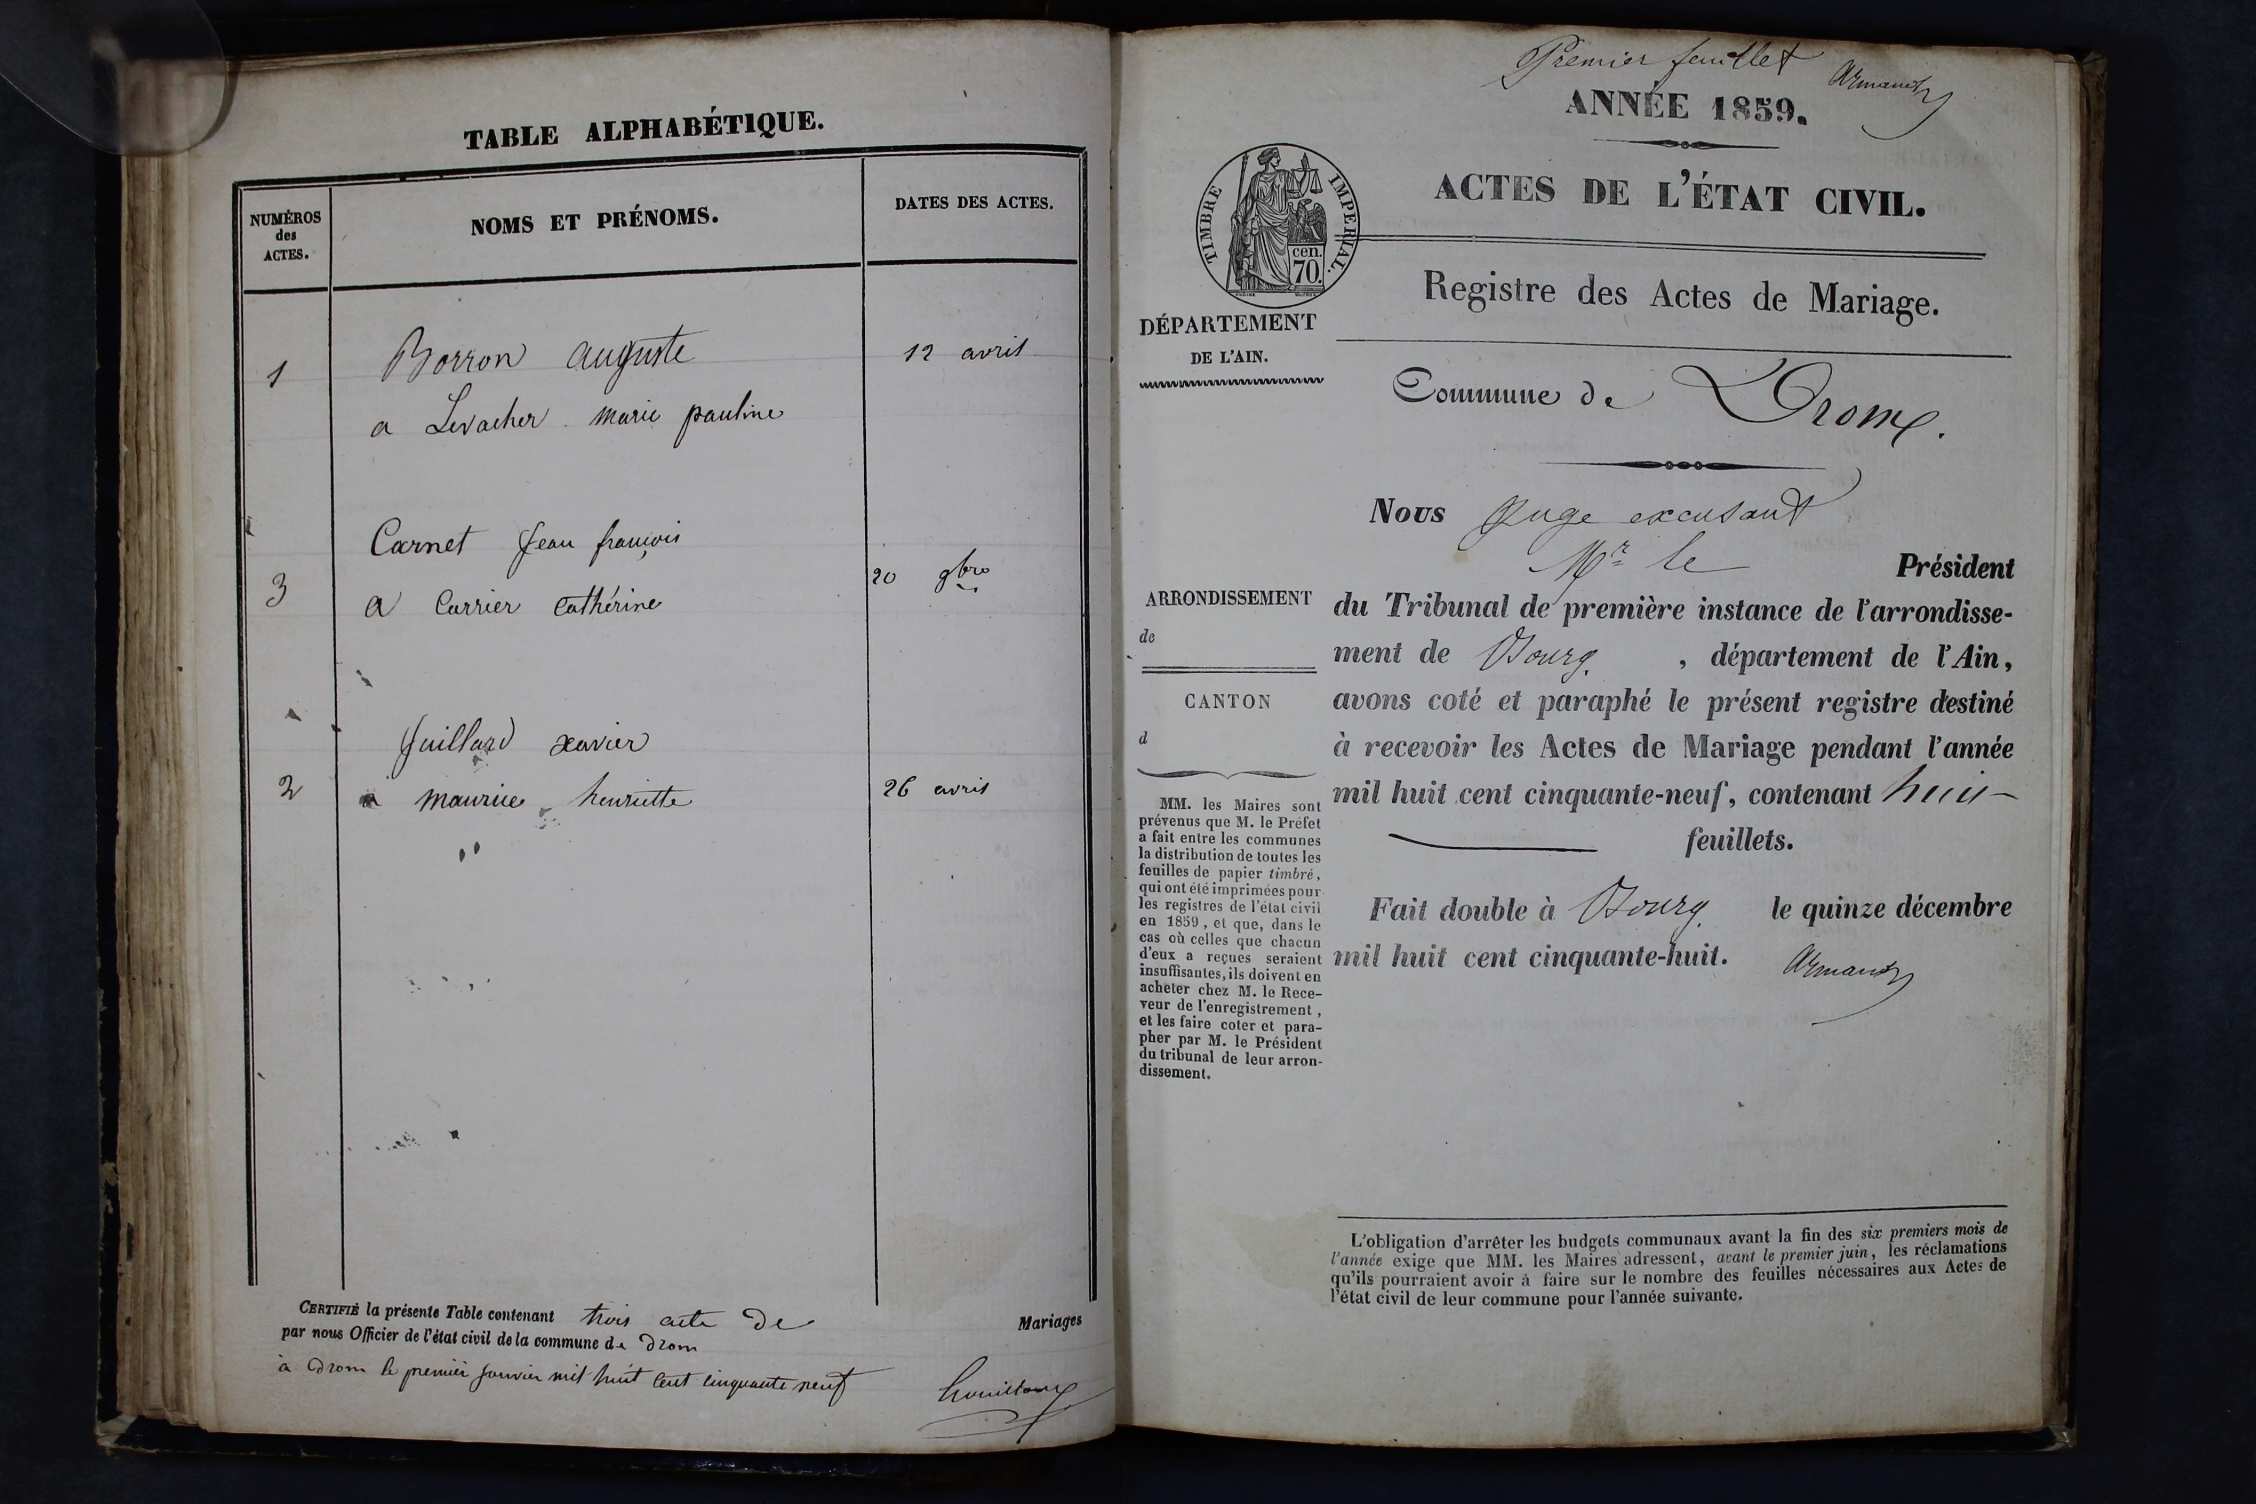 TABLE ALPHABÉTIQUE.
NUMÉROS
des
ACTES.
NOMS ET PRÉNOMS.
DATES DES ACTES.
1
Borron auguste
12 avril
a Levacher marie pauline
Carnet Jean françois
3
20 9bre
a Carrier Cathérine
Juillard xavier
2
a maurice henriette
26 avril
CERTIFIÉ la présente Table contenant trois acte de Mariages
par nous Officier de l'état civil de la commune de Drom
à Drom le premier janvier mil huit cent cinquante neuf
Premier feuillet
ANNÉE 1859.
ACTES DE L'ÉTAT CIVIL.
TIMBRE IMPERIAL.
cen.
70.
Registre des Actes de Mariage.
DÉPARTEMENT
DE L'AIN.
Commune de Drom.
Nous Juge excusant
Mr le Président
du Tribunal de première instance de l'arrondisse-
ment de Bourg, département de l'Ain,
avons coté et paraphé le présent registre destiné
à recevoir les Actes de Mariage pendant l'année
mil huit cent cinquante-neuf, contenant huit
feuillets.
Fait double à Bourg le quinze décembre
mil huit cent cinquante-huit.
ARRONDISSEMENT
de
CANTON
d
MM. les Maires sont
prévenus que M. le Préfet
a fait entre les communes
la distribution de toutes les
feuilles de papier timbré,
qui ont été imprimées pour
les registres de l'état civil
en 1859, et que, dans le
cas où celles que chacun
d'eux a reçues seraient
insuffisantes, ils doivent en
acheter chez M. le Rece-
veur de l'enregistrement,
et les faire coter et para-
pher par M. le Président
du tribunal de leur arron-
dissement.
L'obligation d'arrêter les budgets communaux avant la fin des six premiers mois de
l'année exige que MM. les Maires adressent, avant le premier juin, les réclamations
qu'ils pourraient avoir à faire sur le nombre des feuilles nécessaires aux Actes de
l'état civil de leur commune pour l'année suivante.